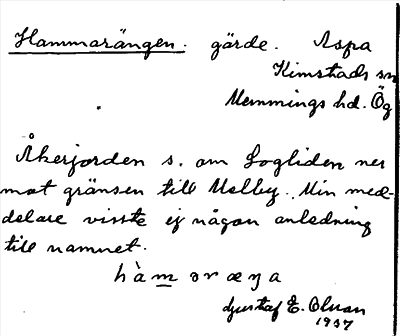 Hammarängen. gärde. Aspa
Kimstads sn
Memmings hd. Ög
Åkerjorden s. om Logliden ner
mot gränsen till Melby. Min med-
delare visste ej någon anledning
till namnet.
hàmaræŋa
Gustaf E. Olsson
1937